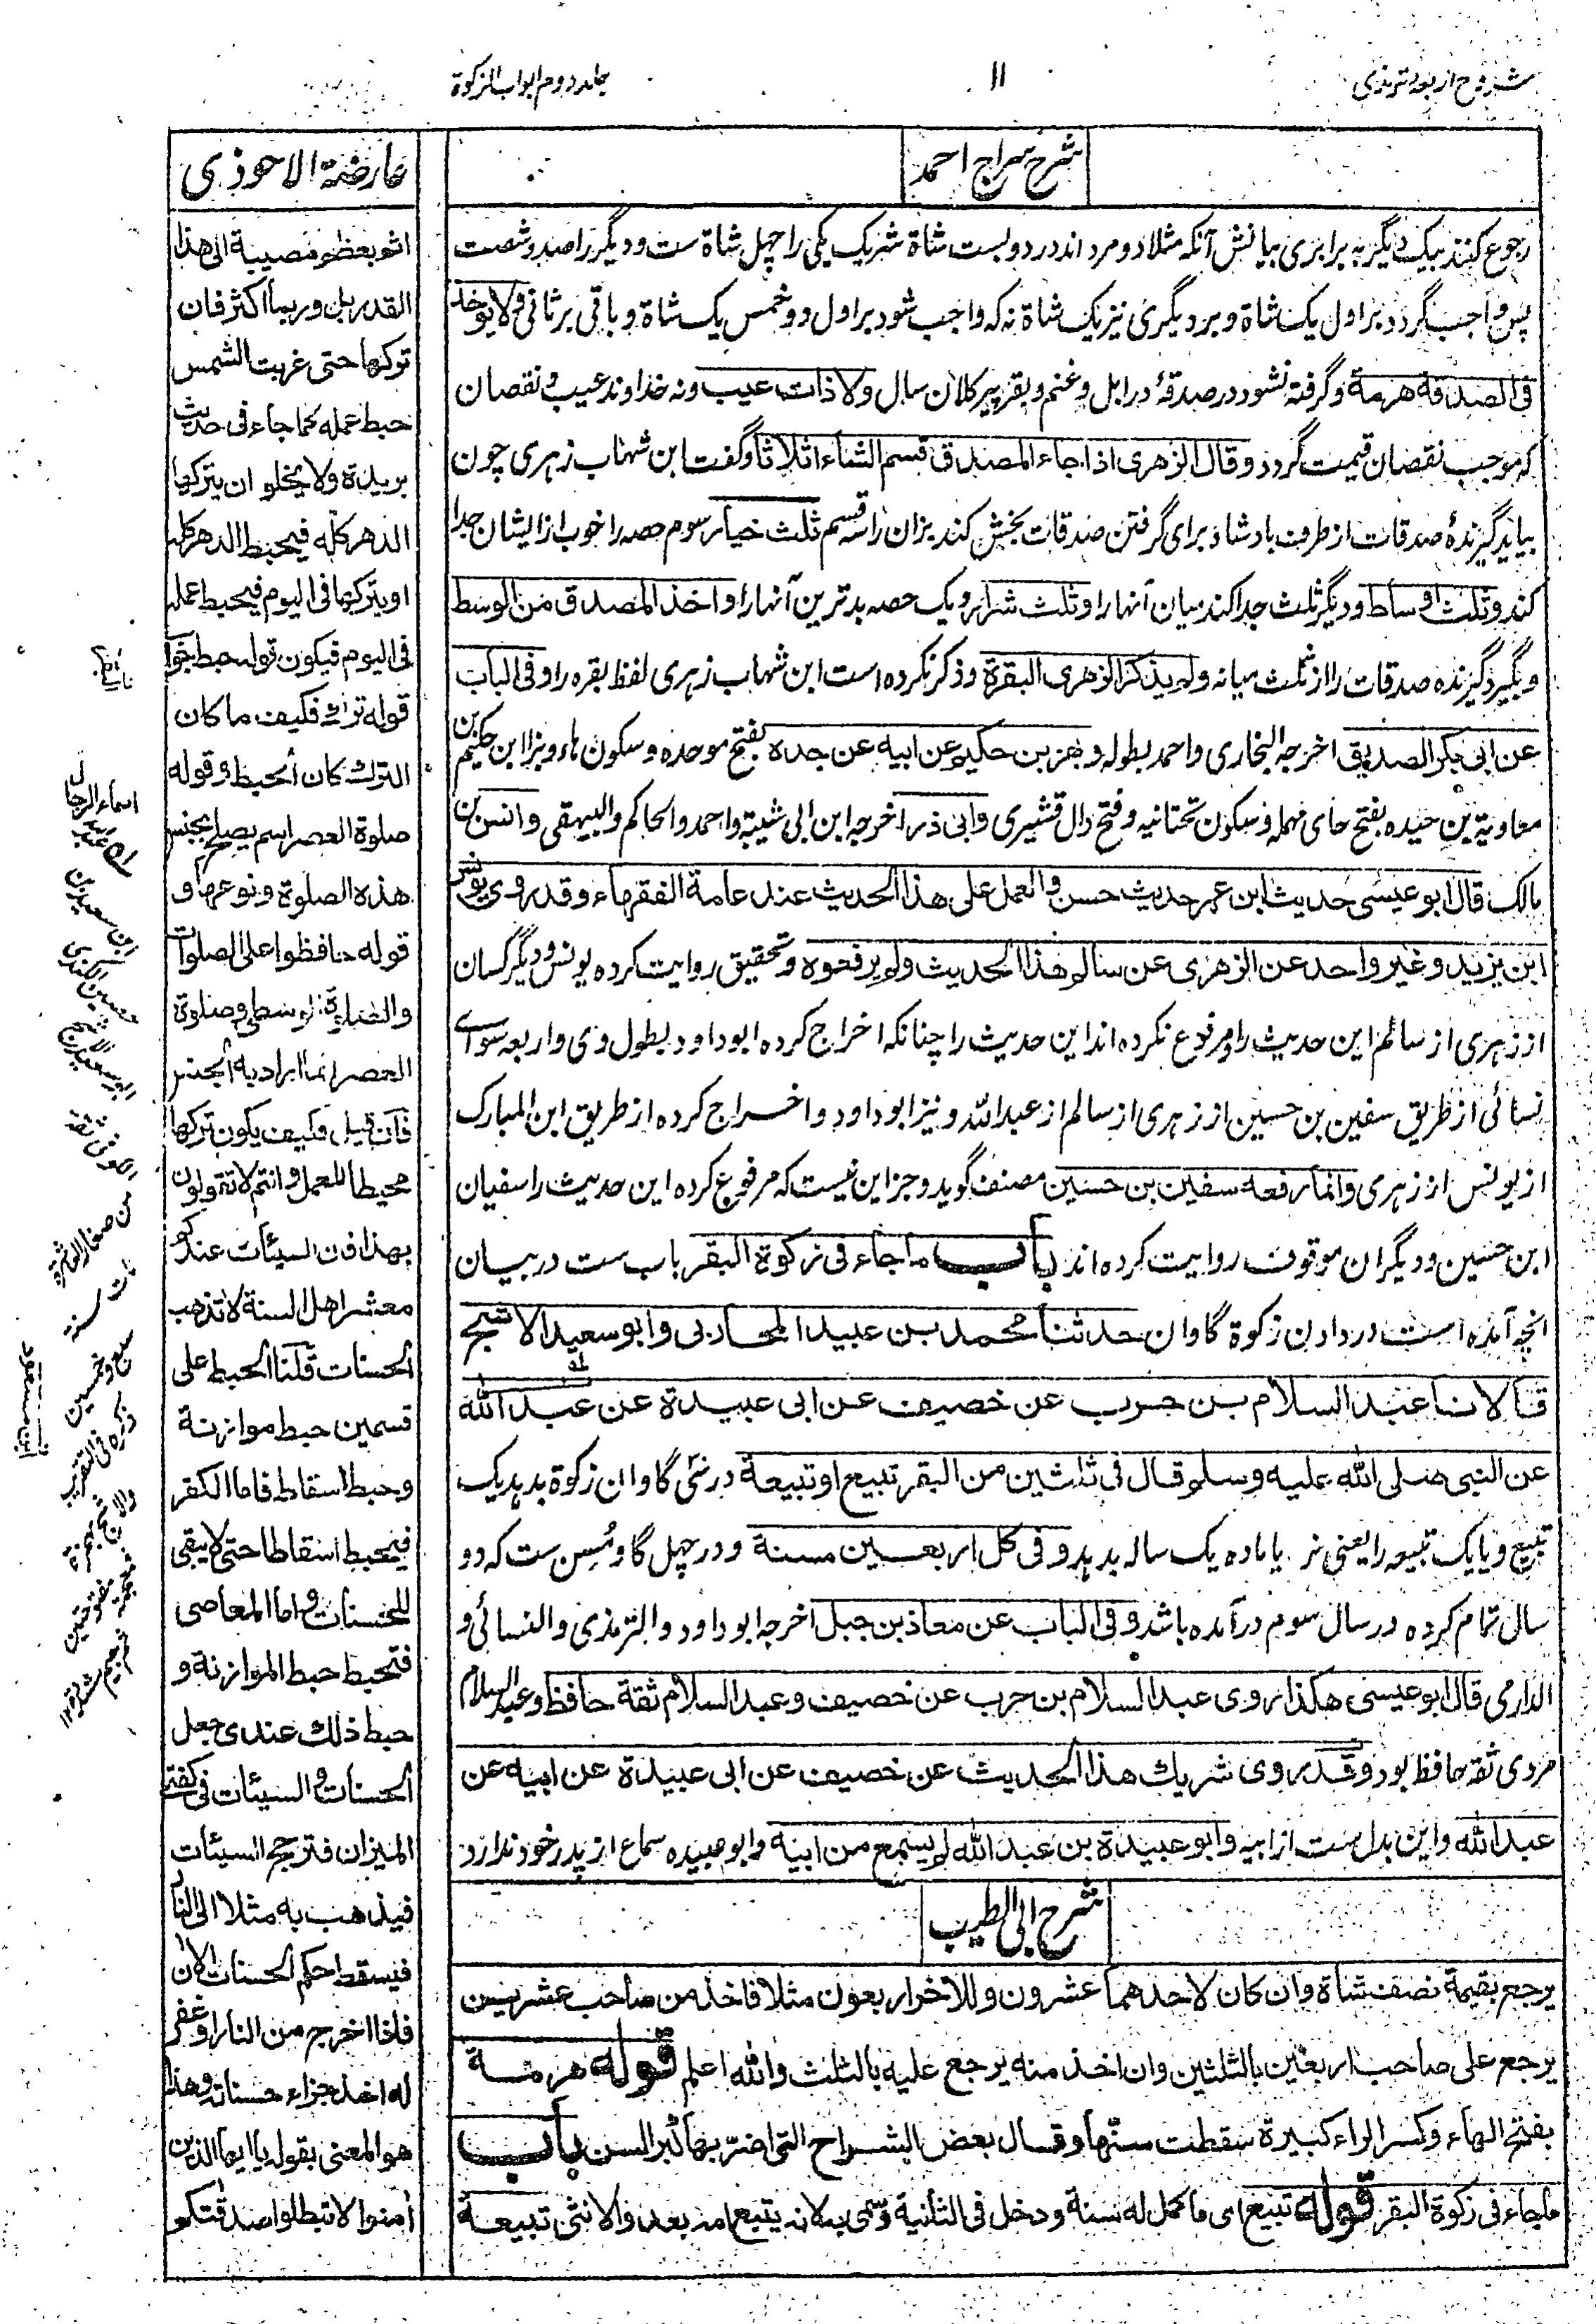 شروح اربعہ ترمذی
۱۱
جلد دوم ابواب الزکوة
شرح سراج احمد
رجوع کنند بیک دیگر به برابری بیانش آنکه مثلا دو مرد اند در دو لبست شاة شریک یکی را چهل شاة ست و دیگر را صد و شصت
پس واجب گردد بر اول یک شاة و بر دیگری نیز یک شاة نه که واجب شود بر اول دو خمس یک شاة و باقی بر ثانی ولا یوخذ
فی الصدقة هرمة و گرفته نشود در صدقهٔ در ابل و غنم و بقر پیر کلان سال ولا ذات عیب و نه خداوند عیب و نقصان
که موجب نقصان قیمت گردد وقال الزهری اذا جاء المصدق قسم الشاء اثلاثا و گفت ابن شهاب زهری چون
بیاید گیرندهٔ صدقات از طرف بادشاه برای گرفتن صدقات بخش کند بزان را سه قسم ثلث خیار سوم حصه را خوب از ایشان جدا
کند وثلث اوساط و دیگر ثلث جدا کند میان آنها را وثلث شرار و یک حصه بدترین آنها را واخذ المصدق من الوسط
و بگیرد گیرنده صدقات را از ثلث میانه ولم یذکر الزهری البقرة و ذکر نکرده است ابن شهاب زهری لفظ بقره را وفی الباب
عن ابی بکر الصدیق اخرجه البخاری واحمد بطوله وبهز بن حکیم عن ابیه عن جده بفتح موحده و سکون هاء و بزا ابن حکیم بن
معاویة بن حیده بفتح حای مهمله و سکون تحتانیه و فتح دال قشیری وابی ذر اخرجه ابن ابی شیبة واحمد والحاکم والبیهقی وانس بن
مالک قال ابو عیسی حدیث ابن عمر حدیث حسن والعمل علی هذا الحدیث عند عامة الفقهاء وقد روی یونس
ابن یزید وغیر واحد عن الزهری عن سالم هذا الحدیث ولم یرفعوه و تحقیق روایت کرده یونس و دیگر کسان
از زهری از سالم این حدیث را و مرفوع نکرده اند این حدیث را چنانکه اخراج کرده ابو داود بطول وی و اربعه سوای
نسائی از طریق سفین بن حسین از زهری از سالم از عبد الله و نیز ابو داود و اخراج کرده از طریق ابن المبارک
از یونس از زهری وانما رفعه سفین بن حسین مصنف گوید و جز این نیست که مرفوع کرده این حدیث را سفیان
ابن حسین و دیگران موقوف روایت کرده اند باب ما جاء فی زکوة البقر باب ست در بیان
انچه آمده است در دادن زکوة گاوان حدثنا محمد بن عبید المحاربی وابو سعید الاشج
قالا نا عبد السلام بن حرب عن خصیف عن ابی عبیدة عن عبد الله
عن النبی صلی الله علیه وسلم قال فی ثلثین من البقر تبیع او تبیعة در سی گاوان زکوة بدهد یک
تبیع و یا یک تبیعه را یعنی نر یا ماده یک ساله بدهد وفی کل اربعین مسنة و در چهل گاو مسن ست که دو
سال تمام کرده در سال سوم درآمده باشد وفی الباب عن معاذ بن جبل اخرجه ابو داود والترمذی والنسائی و
الدارمی قال ابو عیسی هکذا روی عبد السلام بن حرب عن خصیف وعبد السلام ثقة حافظ وعبد السلام
مردی ثقه حافظ بود وقد روی شریك هذا الحدیث عن خصیف عن ابی عبیدة عن ابیه عن
عبد الله و این بدل ست از ابیه وابو عبیدة بن عبد الله لم یسمع من ابیه و ابو عبیده سماع از پدر خود ندارد
شرح ابی الطیب
یرجع بقیمة نصف شاة وان کان لاحدهما عشرون وللاخر اربعون مثلا فاخذ من صاحب عشرین
یرجع علی صاحب اربعین بالثلثین وان اخذ منه یرجع علیه بالثلث والله اعلم قوله هرمة
بفتح الهاء وکسر الراء کبیرة سقطت سنها وقال بعض الشراح التی اضر بها کبر السن باب
ماجاء فی زکوة البقر قوله تبیع ای ما کمل له سنة ودخل فی الثانیة وسمی به لانه یتبع امه بعد والانثی تبیعة
عارضة الاحوذی
اثم بعظم مصیبة الی هذا
القدر بل وربما اکثر فان
ترکها حتی غربت الشمس
حبط عمله کما جاء فی حدیث
بریدة ولا یخلو ان یترکها
الدهر کله فیحبط الدهر کله
او یترکها فی الیوم فیحبط عمله
فی الیوم فیکون قوله حبط جواب
قوله ترك فکیف ما کان
الترك کان الحبط وقوله
صلوة العصر اسم یصلح لجنس
هذه الصلوة ونوعها و
قوله حافظوا علی الصلوات
والصلوة الوسطی وصلوة
العصر انما اراد به الجنس
فان قیل فکیف یکون ترکها
محبطا للعمل وانتم لا تقولون
بهذا فان السیئات عندکم
معشر اهل السنة لا تذهب
الحسنات قلنا الحبط علی
قسمین حبط موازنة
وحبط اسقاط فاما الکفر
فیحبط اسقاطا حتی لا یبقی
للحسنات واما المعاصی
فتحبط حبط الموازنة و
حبط ذلك عندی جعل
الحسنات والسیئات فی کفتی
المیزان فترجح السیئات
فیذهب به مثلا الی النار
فیسقط حکم الحسنات الان
فاذا اخرج من النار او غفر
له اخذ جزاء حسناته وهذا
هو المعنی بقوله یا ایها الذین
آمنوا لا تبطلوا صدقتکم
اسماء الرجال
ابن سعید بن
حسین الکندی
الکوفی ثقة
من صغار العاشرة
مات سنة
سبع وخمسین
ذکره فی التقریب
ابن مسعود